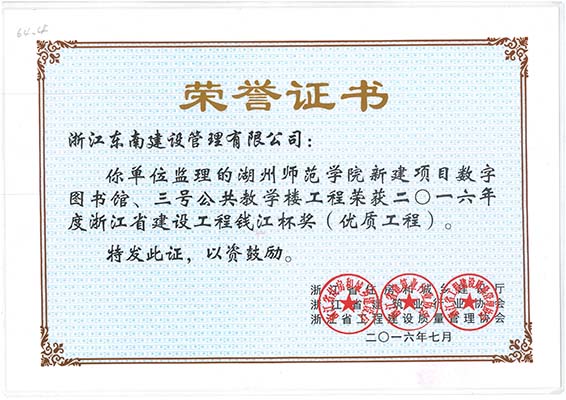 荣誉证书
浙江东南建设管理有限公司：
你单位监理的湖州师范学院新建项目数字
图书馆、三号公共教学楼工程荣获二〇一六年
度浙江省建设工程钱江杯奖（优质工程）。
特发此证，以资鼓励。
浙江省住房和城乡建设厅
浙江省建筑业行业协会
浙江省工程建设质量管理协会
二〇一六年七月